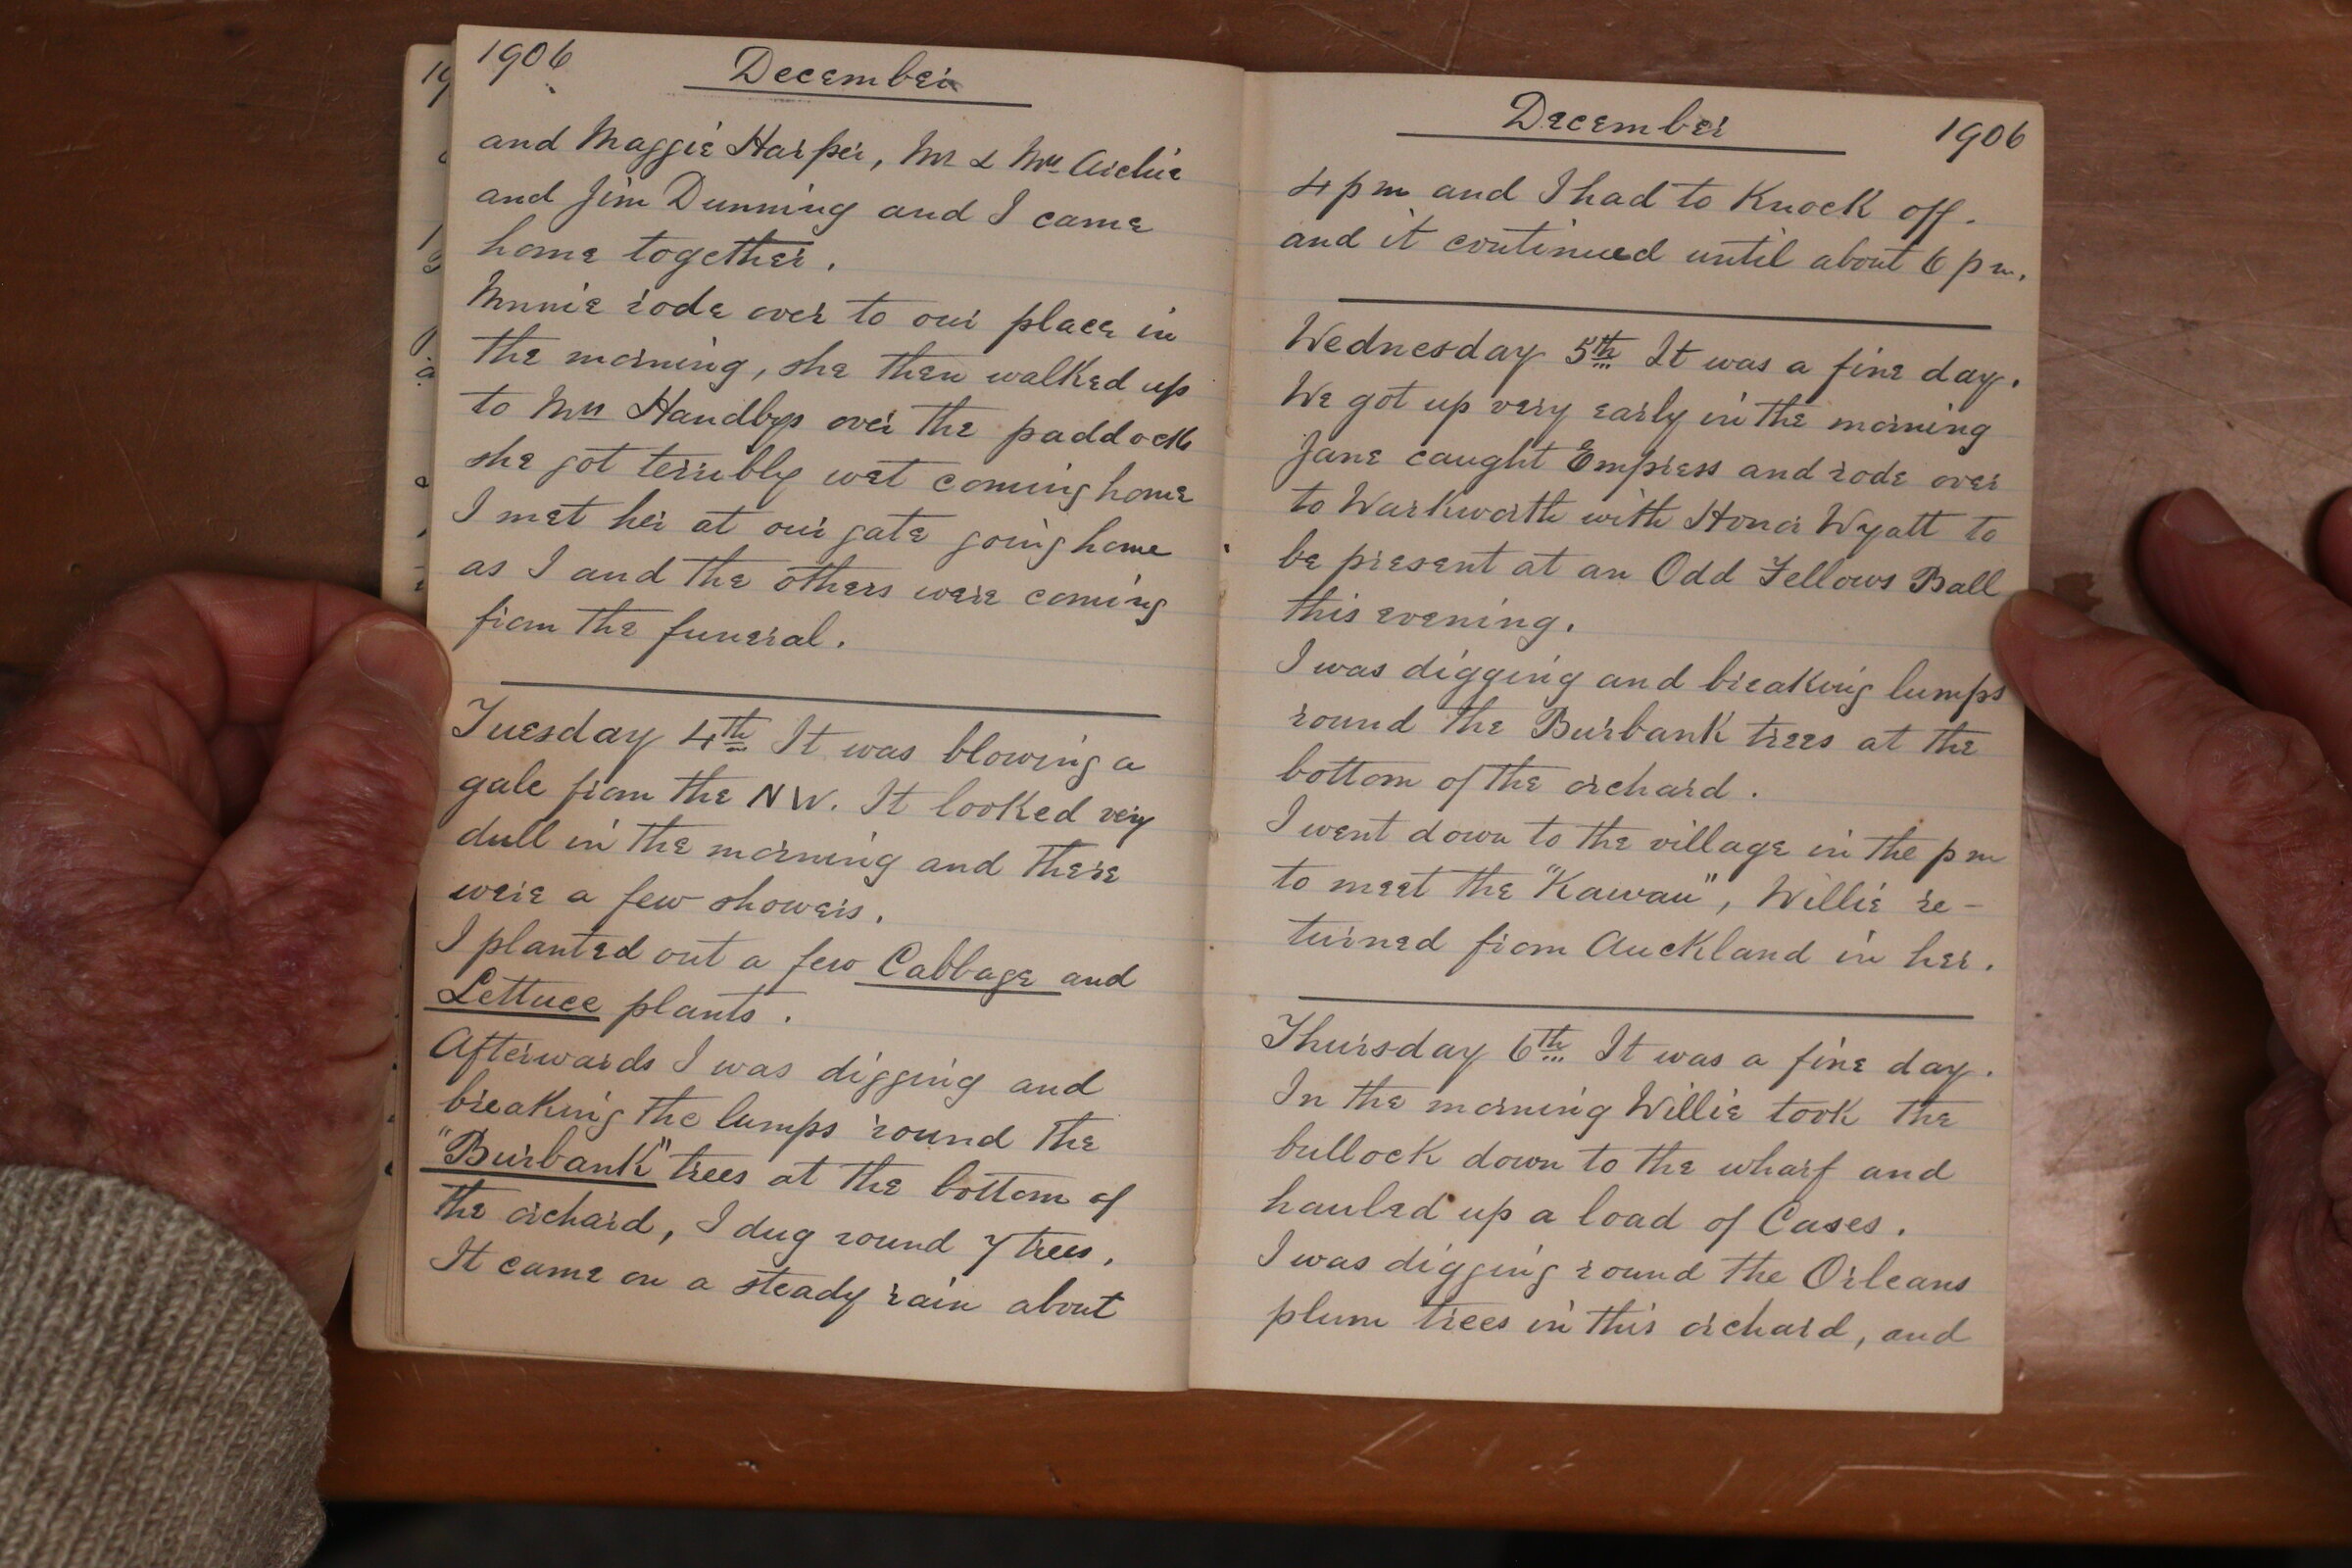 1906
December
and Maggie Harper, Mr & Mrs Archie
and Jim Dunning and I came
home together.
Minnie rode over to our place in
the morning, she then walked up
to Mrs Handbys over the paddock
she got terribly wet coming home
I met her at our gate going home
as I and the others were coming
from the funeral.
Tuesday 4th It was blowing a
gale from the NW. It looked very
dull in the morning and there
were a few showers.
I planted out a few Cabbage and
Lettuce plants.
Afterwards I was digging and
breaking the lumps round the
"Burbank" trees at the bottom of
the orchard, I dug round 7 trees.
It came on a steady rain about
December
1906
4 pm and I had to Knock off.
and it continued until about 6 pm.
Wednesday 5th It was a fine day.
We got up very early in the morning
Jane caught Empress and rode over
to Warkworth with Honor Wyatt to
be present at an Odd Fellows Ball
this evening.
I was digging and breaking lumps
round the Burbank trees at the
bottom of the orchard.
I went down to the village in the pm
to meet the "Kawau", Willie re-
turned from Auckland in her.
Thursday 6th It was a fine day.
In the morning Willie took the
bullock down to the wharf and
hauled up a load of Cases.
I was digging round the Orleans
plum trees in this orchard, and